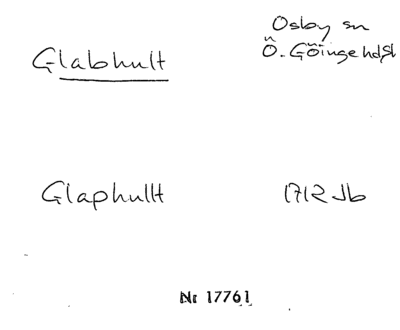 Glabhult
Osby sn
Ö. Göinge hd
Glaphullt
1712 Jb
Nr 17761